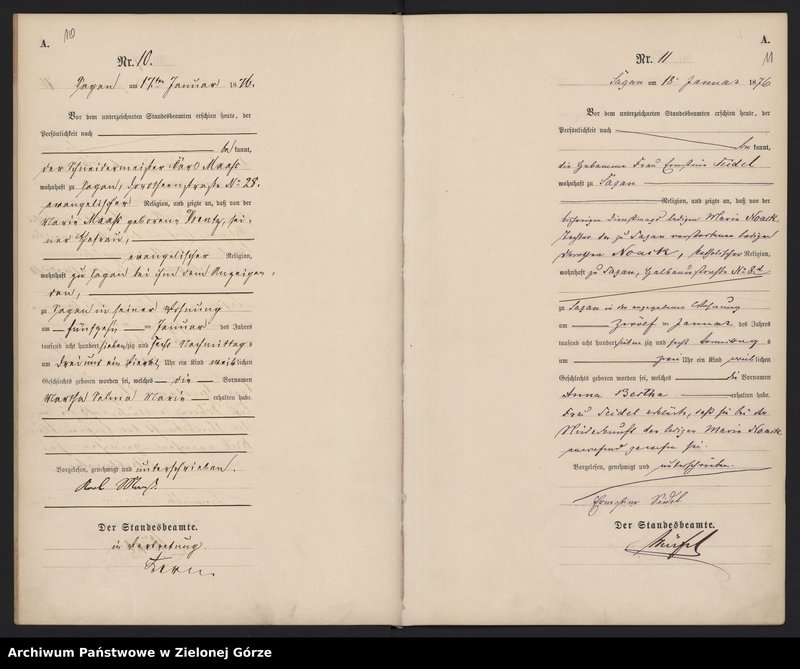 A.
10
Nr. 10.
Sagan am 17ten Januar 1876.
Vor dem unterzeichneten Standesbeamten erschien heute, der
Persönlichkeit nach
be kannt,
der Schneidermeister Karl Maaß
wohnhaft zu Sagan, Dorotheenstraße No 28.
evangelischer Religion, und zeigte an, daß von der
Marie Maaß geborene sei-
ner Ehefrau,
evangelischer Religion,
wohnhaft zu Sagan bei ihm dem Anzeigen-
den,
zu Sagan in seiner Wohnung
am fünfzehn ten Januar des Jahres
tausend acht hundert siebenzig und sechs Nachmittags
um drei und ein Viertel Uhr ein Kind weiblichen
Geschlechts geboren worden sei, welches die Vornamen
Martha Selma Marie erhalten habe.
Vorgelesen, genehmigt und unterschrieben.
Karl Maaß.
Der Standesbeamte.
in Vertretung
A.
11
Nr. 11
Sagan am 18 Januar 1876
Vor dem unterzeichneten Standesbeamten erschien heute, der
Persönlichkeit nach
be kannt,
die Hebamme Frau Ernestine Seidel
wohnhaft zu Sagan
Religion, und zeigte an, daß von der
bisherigen Dienstmagd ledigen Marie Noack
Tochter der zu Sagan verstorbenen ledigen
Dorothea Noack, katholischer Religion,
wohnhaft zu Sagan, No 8d
zu Sagan in der angegebenen Wohnung
am zwölf ten Januar des Jahres
tausend acht hundert sieben zig und sechs Vormittag s
um zwei Uhr ein Kind weiblichen
Geschlechts geboren worden sei, welches die Vornamen
Anna Bertha erhalten habe.
Frau Seidel erklärte, daß sie bei der
Niederkunft der ledigen Marie Noack
anwesend gewesen sei.
Vorgelesen, genehmigt und unterschrieben.
Ernestine Seidel
Der Standesbeamte.
Archiwum Państwowe w Zielonej Górze